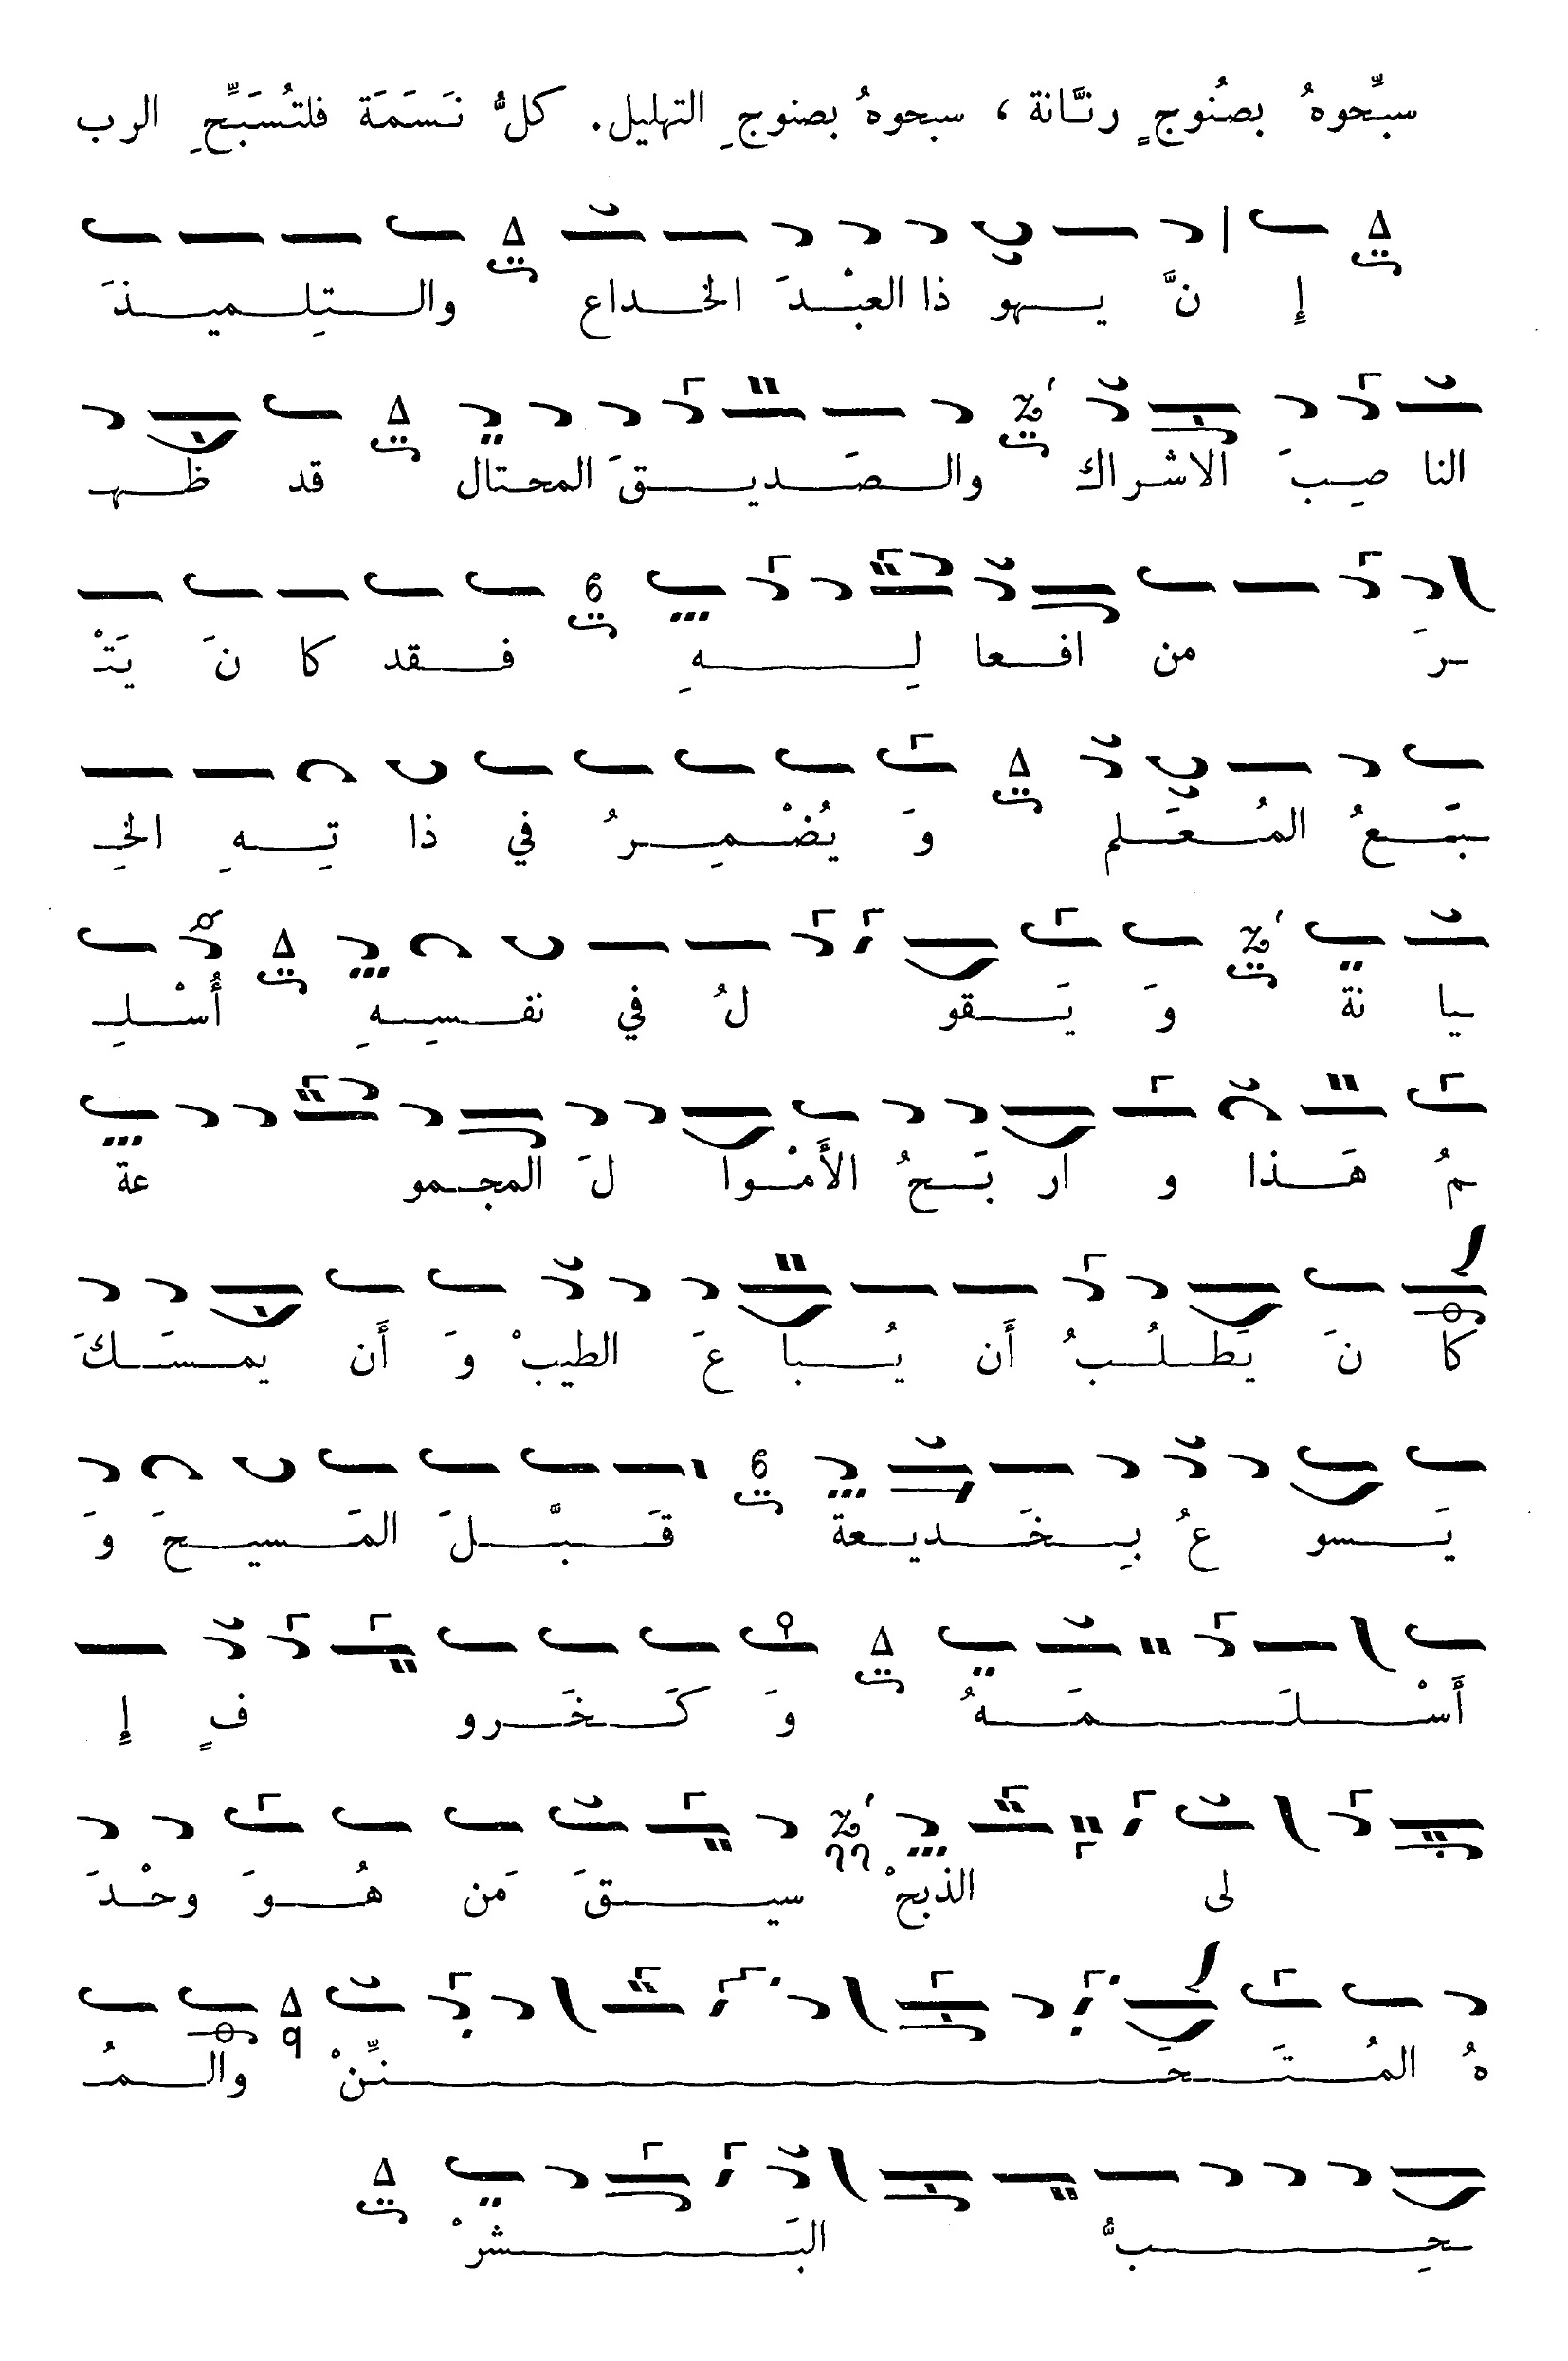 سبِّحوهُ بصُنُوجٍ رنَّانة ، سبحوهُ بصنوجِ التهليل. كلُّ نَسَمَة فلتُسَبِّحِ الرب
إِ نَّ يـهو ذا العبْـدَ الخـداع والـتِلـميـذَ
النا صِبَ الاشراك والـصَديـقَ المحتال قد ظـهـ
ـرَ من افـعا لِـهِ فـقد كا نَ يَتْـ
ـبَـعُ المُـعَـلم وَ يُضْـمِـرُ في ذا تِـهِ الخِـ
ـيا نة وَ يَـقو لُ في نفـسِـهِ أُسْـلِـ
ـمُ هَـذا و ار بَـحُ الأَمْـوا لَ المجـمو عة
كا نَ يَطـلُـبُ أَن يُـبا عَ الطيبْ وَ أَن يمـسَـكَ
يَـسو عُ بِـخَـديـعة قَـبَّـلَ المَـسيـحَ وَ
أَسْـلَـمَـهُ وَ كَـخَـرو فٍ إِ
لى الذبحْ سيـقَ مَن هُـوَ وحْـدَ
هُ المُـتَـحَـنِّنْ والـمُـ
ـحِـبُّ البَـشرْ